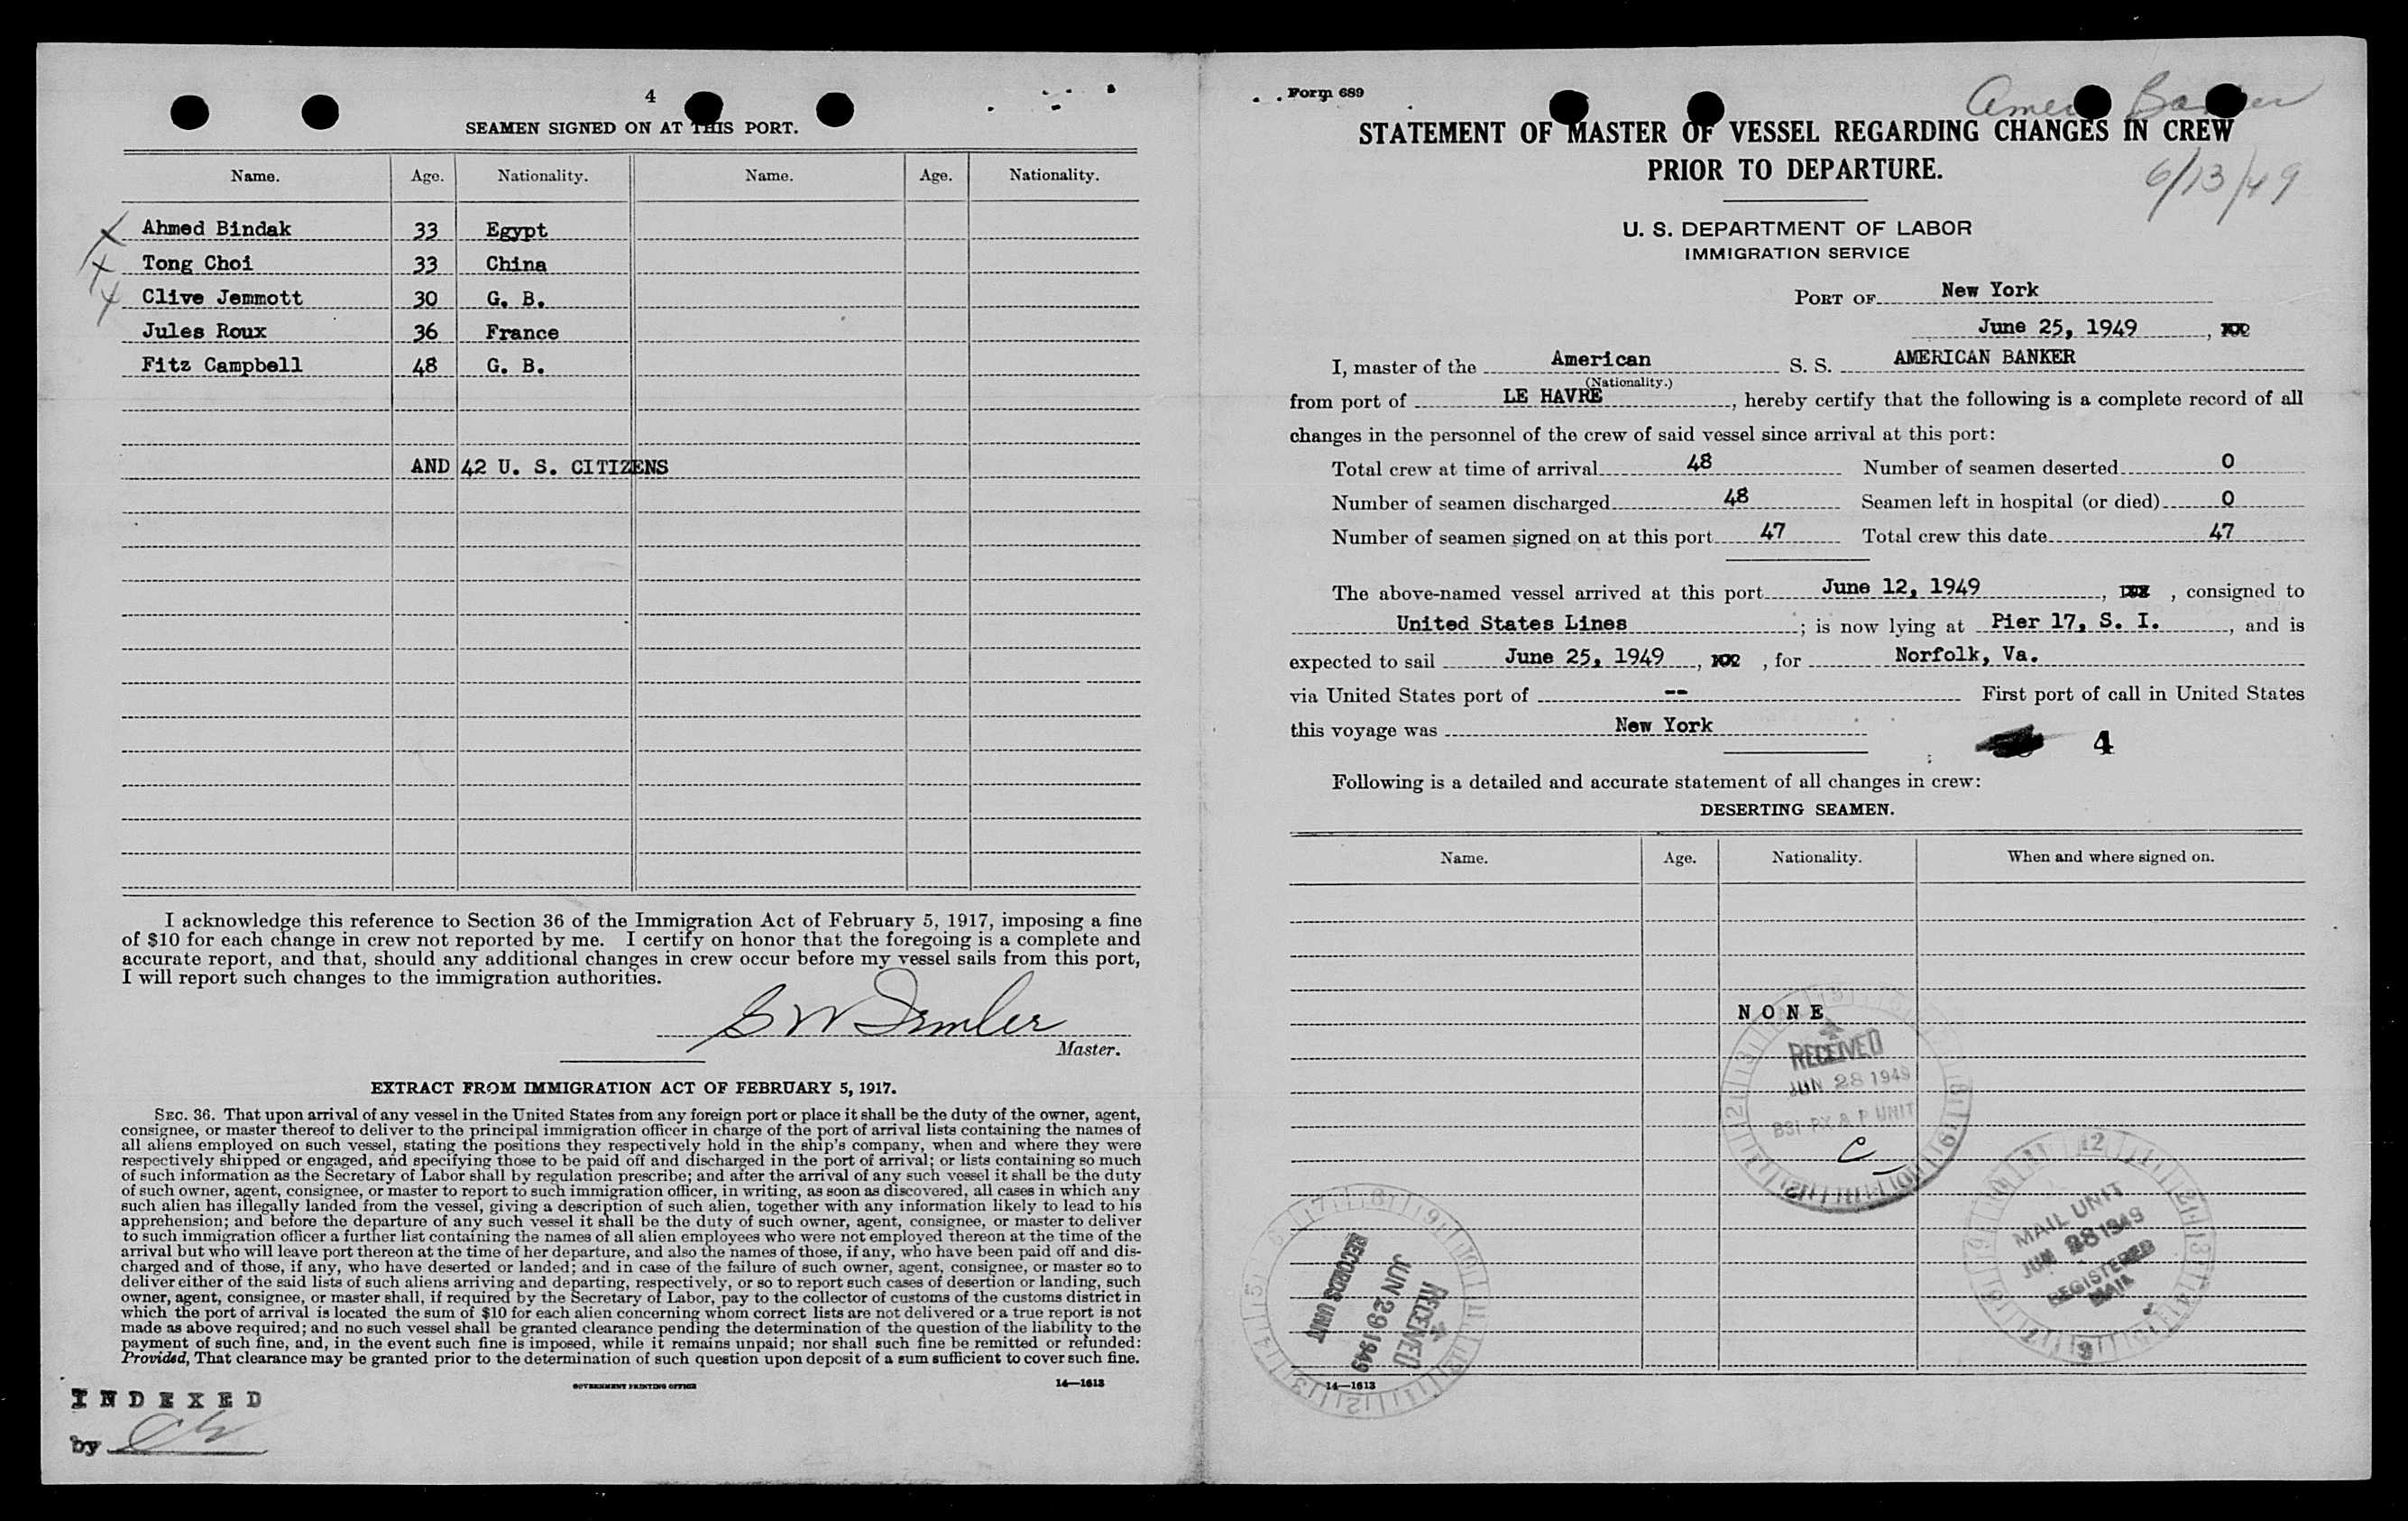 4
SEAMEN SIGNED ON AT THIS PORT.
Name. Age. Nationality. Name. Age. Nationality.
Ahmed Bindak 33 Egypt
Tong Choi 33 China
Clive Jemmott 30 G. B.
Jules Roux 36 France
Fitz Campbell 48 G. B.
AND 42 U. S. CITIZENS
I acknowledge this reference to Section 36 of the Immigration Act of February 5, 1917, imposing a fine
of $10 for each change in crew not reported by me. I certify on honor that the foregoing is a complete and
accurate report, and that, should any additional changes in crew occur before my vessel sails from this port,
I will report such changes to the immigration authorities.
Master.
EXTRACT FROM IMMIGRATION ACT OF FEBRUARY 5, 1917.
SEC. 36. That upon arrival of any vessel in the United States from any foreign port or place it shall be the duty of the owner, agent,
consignee, or master thereof to deliver to the principal immigration officer in charge of the port of arrival lists containing the names of
all aliens employed on such vessel, stating the positions they respectively hold in the ship's company, when and where they were
respectively shipped or engaged, and specifying those to be paid off and discharged in the port of arrival; or lists containing so much
of such information as the Secretary of Labor shall by regulation prescribe; and after the arrival of any such vessel it shall be the duty
of such owner, agent, consignee, or master to report to such immigration officer, in writing, as soon as discovered, all cases in which any
such alien has illegally landed from the vessel, giving a description of such alien, together with any information likely to lead to his
apprehension; and before the departure of any such vessel it shall be the duty of such owner, agent, consignee, or master to deliver
to such immigration officer a further list containing the names of all alien employees who were not employed thereon at the time of the
arrival but who will leave port thereon at the time of her departure, and also the names of those, if any, who have been paid off and dis-
charged and of those, if any, who have deserted or landed; and in case of the failure of such owner, agent, consignee, or master so to
deliver either of the said lists of such aliens arriving and departing, respectively, or so to report such cases of desertion or landing, such
owner, agent, consignee, or master shall, if required by the Secretary of Labor, pay to the collector of customs of the customs district in
which the port of arrival is located the sum of $10 for each alien concerning whom correct lists are not delivered or a true report is not
made as above required; and no such vessel shall be granted clearance pending the determination of the question of the liability to the
payment of such fine, and, in the event such fine is imposed, while it remains unpaid; nor shall such fine be remitted or refunded:
Provided, That clearance may be granted prior to the determination of such question upon deposit of a sum sufficient to cover such fine.
GOVERNMENT PRINTING OFFICE 14—1613
INDEXED
by
Form 689
Amer Banker
STATEMENT OF MASTER OF VESSEL REGARDING CHANGES IN CREW
PRIOR TO DEPARTURE.
6/13/49
U. S. DEPARTMENT OF LABOR
IMMIGRATION SERVICE
PORT OF New York
June 25, 1949,
I, master of the American S. S. AMERICAN BANKER
(Nationality.)
from port of LE HAVRE, hereby certify that the following is a complete record of all
changes in the personnel of the crew of said vessel since arrival at this port:
Total crew at time of arrival 48 Number of seamen deserted 0
Number of seamen discharged 48 Seamen left in hospital (or died) 0
Number of seamen signed on at this port 47 Total crew this date 47
The above-named vessel arrived at this port June 12, 1949, , consigned to
United States Lines; is now lying at Pier 17, S. I., and is
expected to sail June 25, 1949, , for Norfolk, Va.
via United States port of -- First port of call in United States
this voyage was New York
4
Following is a detailed and accurate statement of all changes in crew:
DESERTING SEAMEN.
Name. Age. Nationality. When and where signed on.
NONE
RECEIVED
JUN 28 1949
C
MAIL UNIT
JUN 28 1949
REGISTERED
MAIL
RECEIVED
JUN 29 1949
RECORDS UNIT
14—1613